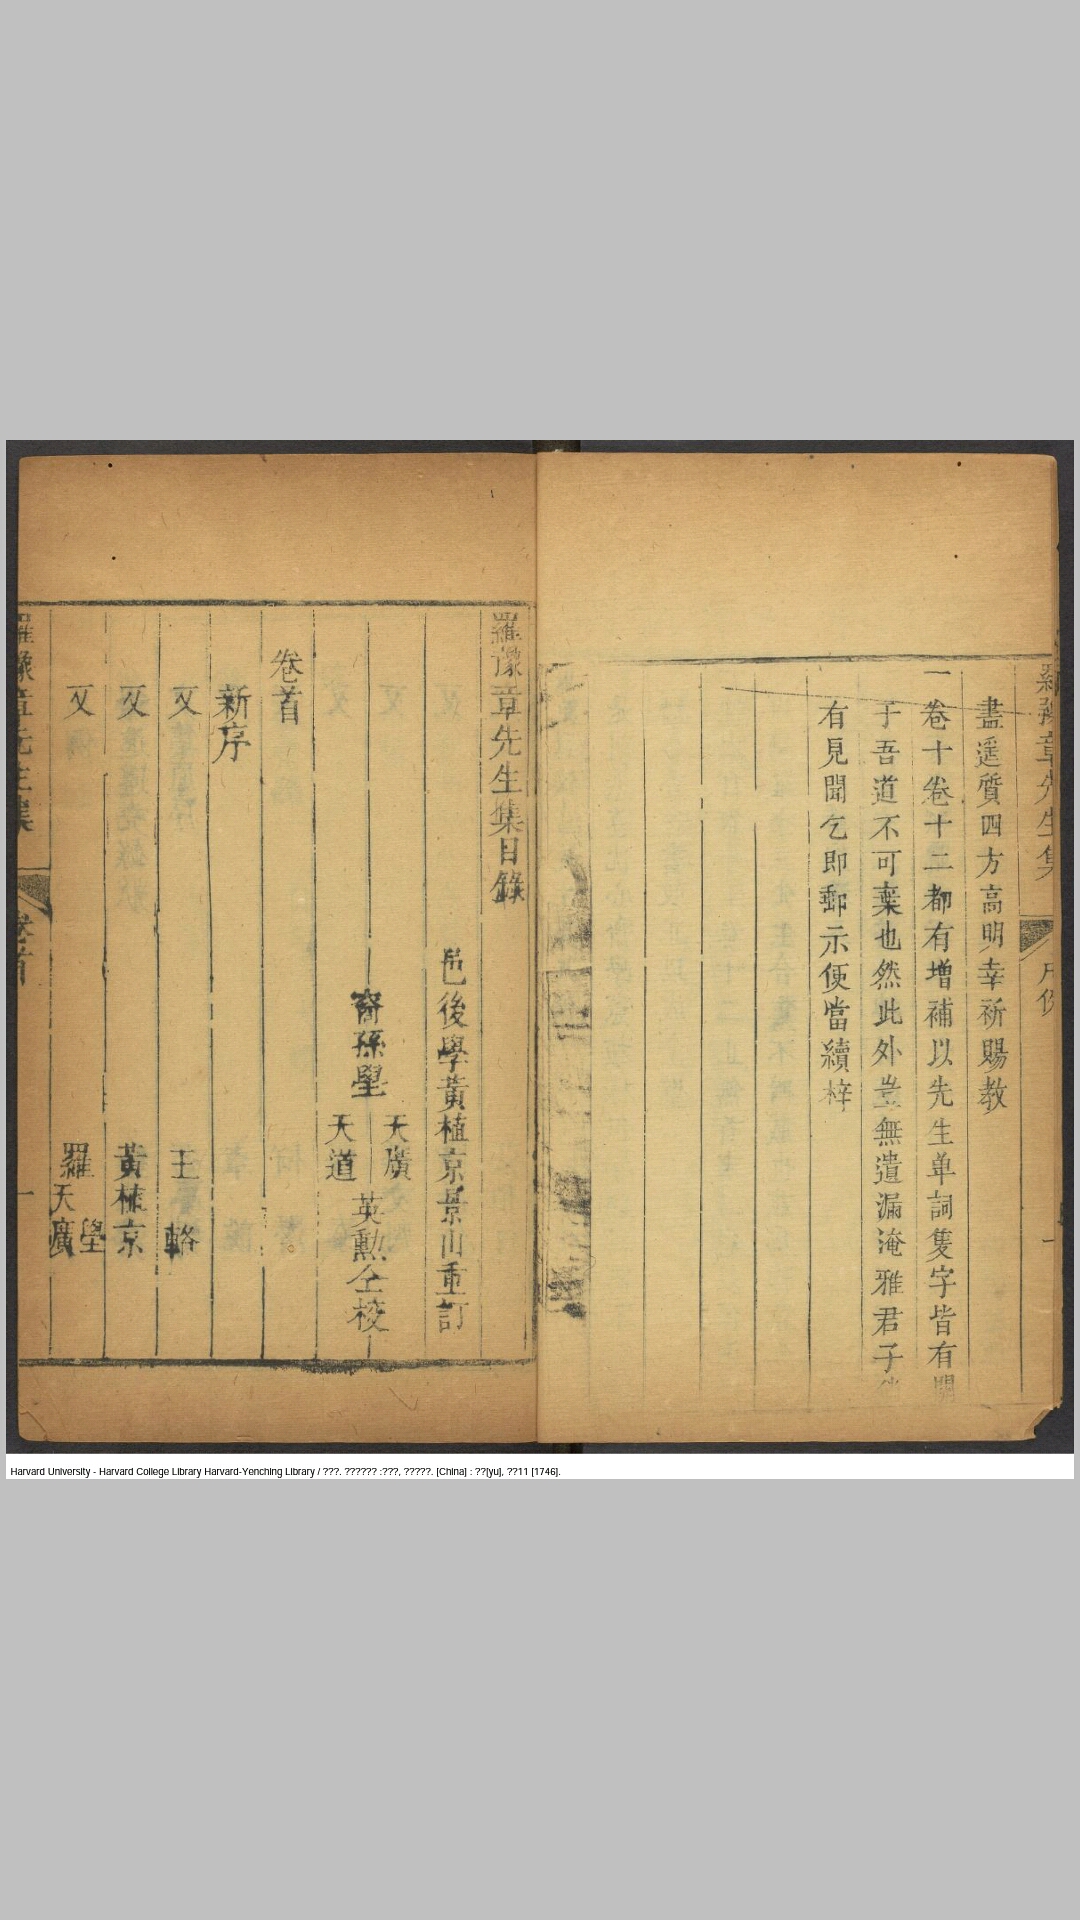 羅豫章先生集
凡例
一
盡遥質四方高明幸祈賜教
一卷十卷十二都有增補以先生单詞隻字皆有關
于吾道不可棄也然此外豈無遺漏淹雅君子
有見聞乞即郵示便當續梓
羅豫章先生集目錄
邑後學黃植京景山重訂
裔孫壆
天廣
天道
英勳仝校
卷首
新序
又
王輅
又
黃植京
又
羅天廣
壆
羅豫章先生集
卷首
一
Harvard University - Harvard College Library Harvard-Yenching Library / ???. ?????? :???, ?????. [China] : ??[yu], ??11 [1746].